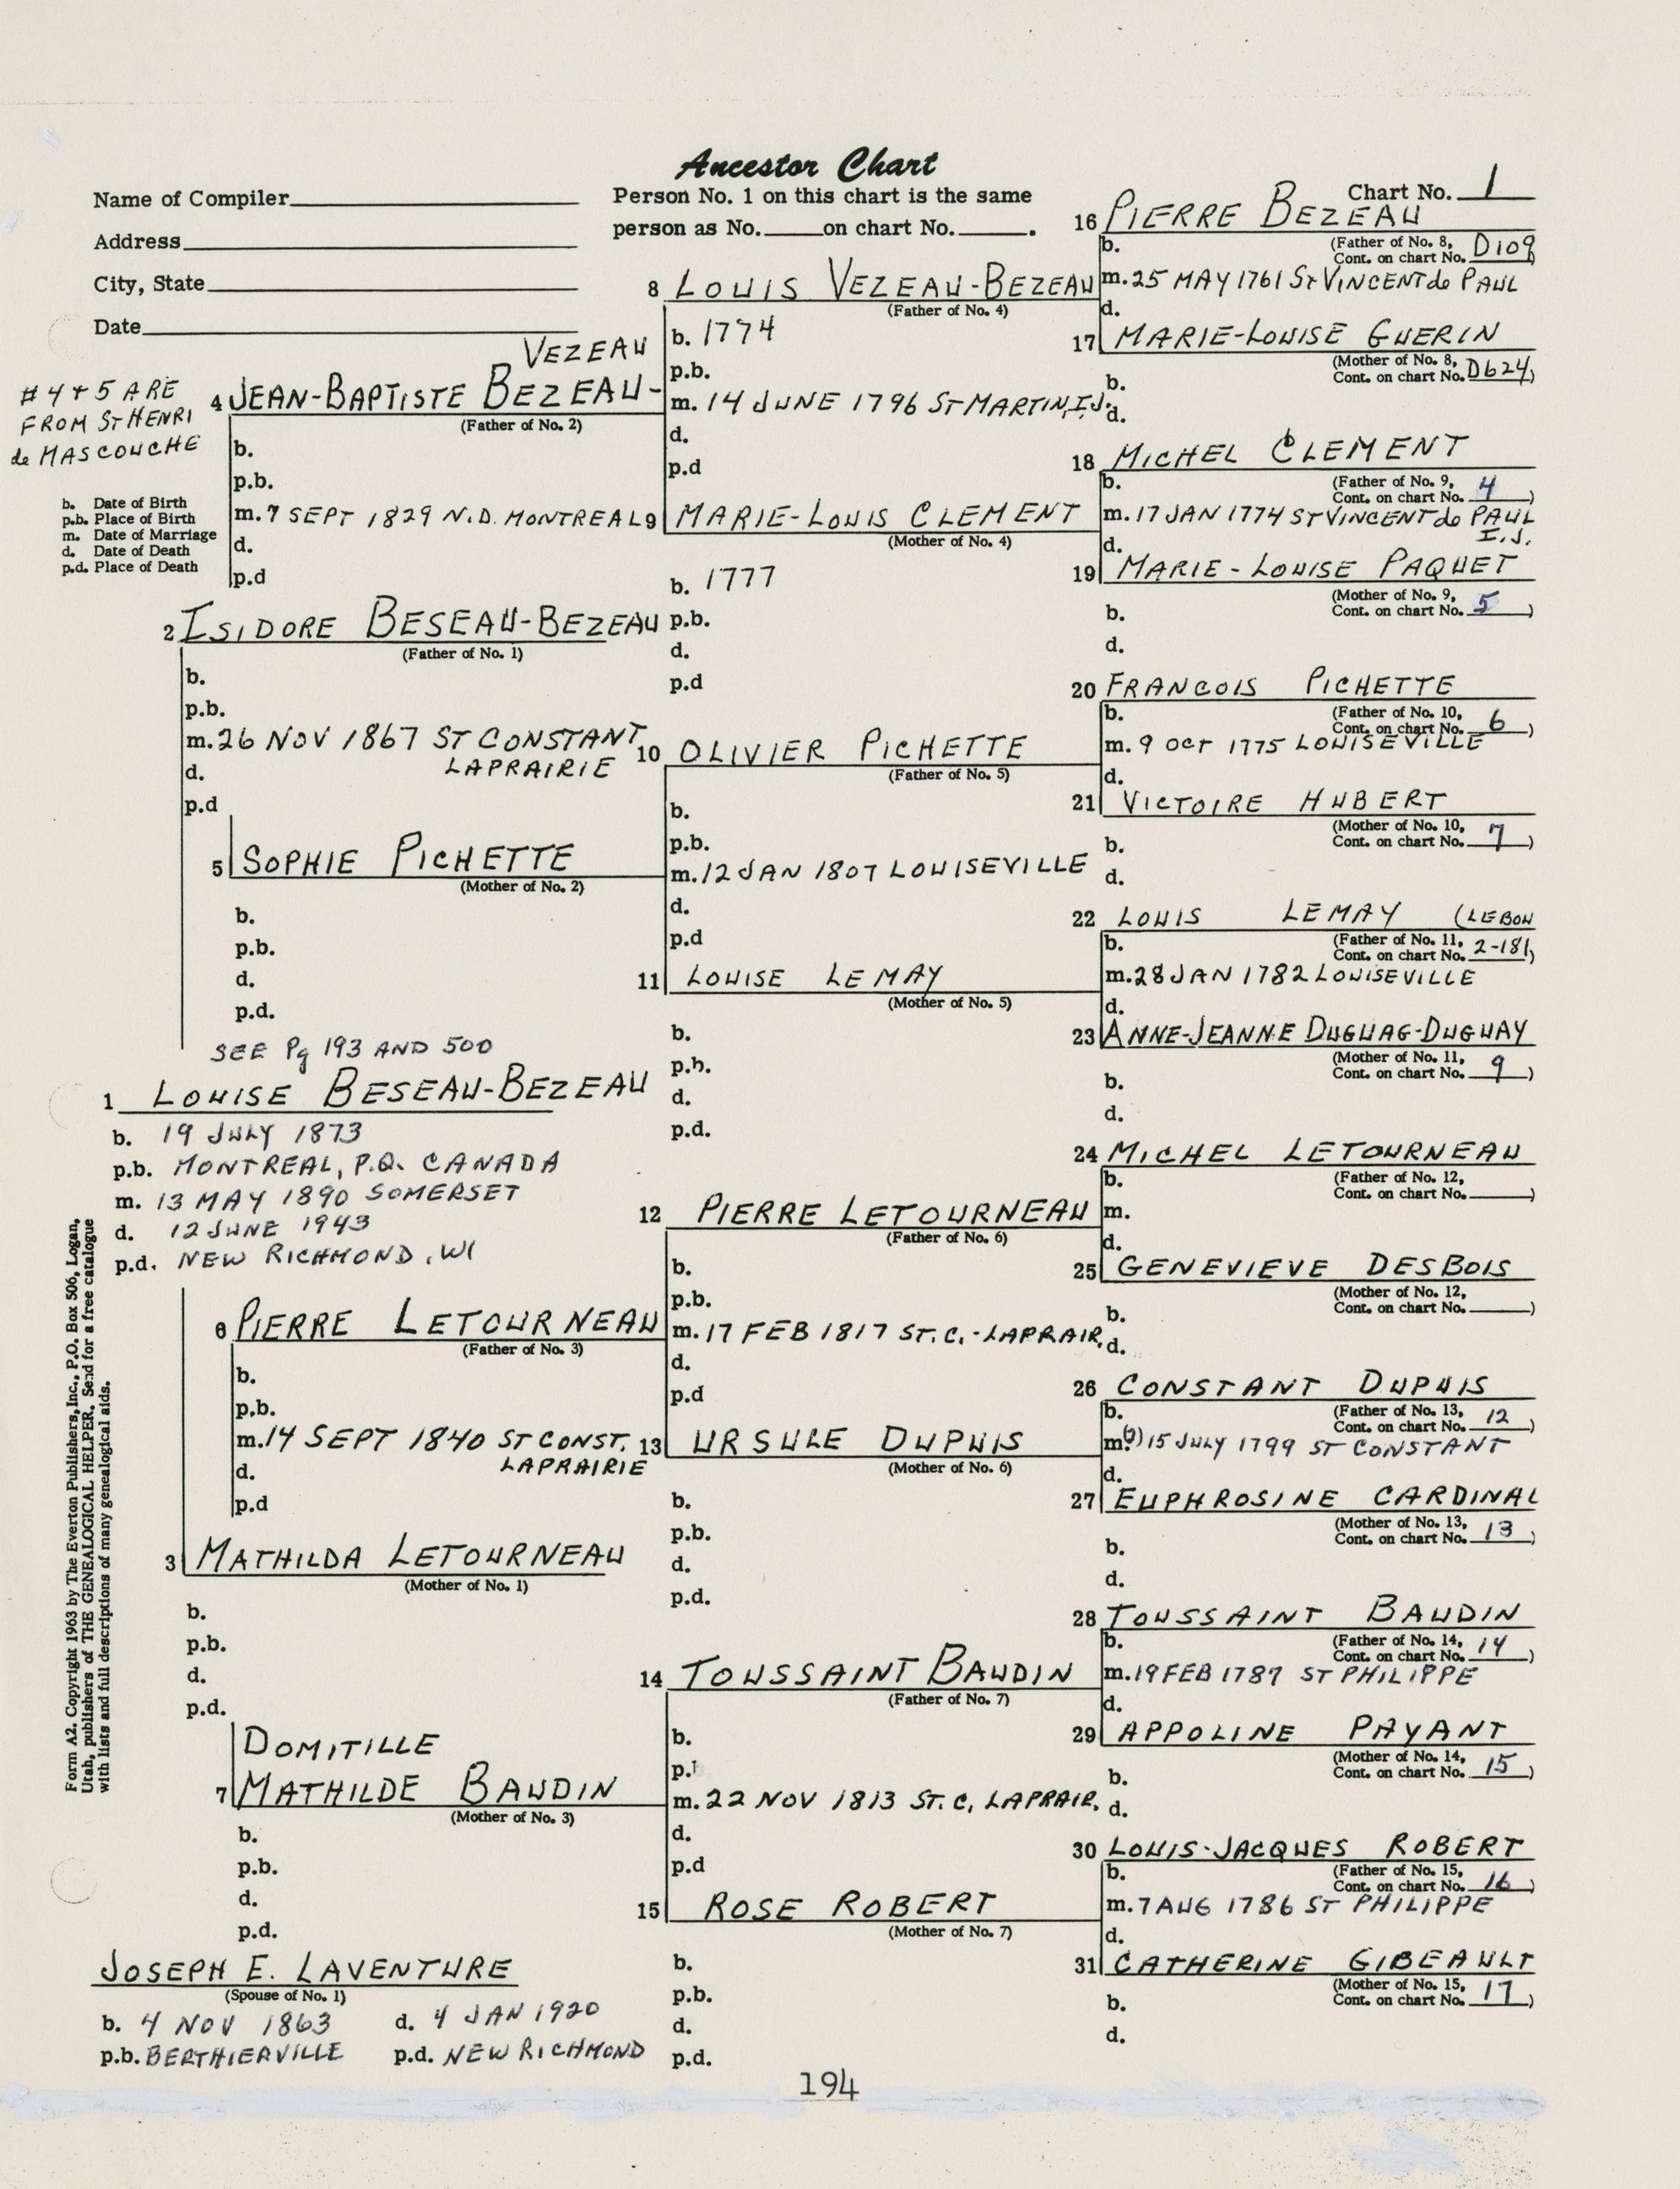 Ancestor Chart
Name of Compiler
Address
City, State
Date
Person No. 1 on this chart is the same
person as No. on chart No. .
Chart No. 1
# 4 + 5 ARE
FROM ST HENRI
de MASCOUCHE
b. Date of Birth
p.b. Place of Birth
m. Date of Marriage
d. Date of Death
p.d. Place of Death
SEE Pg 193 AND 500
1 LOUISE BESEAU-BEZEAU
b. 19 JULY 1873
p.b. MONTREAL, P.Q. CANADA
m. 13 MAY 1890 SOMERSET
d. 12 JUNE 1943
p.d. NEW RICHMOND, WI
2 ISIDORE BESEAU-BEZEAU
(Father of No. 1)
b.
p.b.
m. 26 NOV 1867 ST CONSTANT
LAPRAIRIE
d.
p.d
3 MATHILDA LETOURNEAU
(Mother of No. 1)
b.
p.b.
d.
p.d.
VEZEAU
4 JEAN-BAPTISTE BEZEAU-
(Father of No. 2)
b.
p.b.
m. 7 SEPT 1829 N.D. MONTREAL
d.
p.d
5 SOPHIE PICHETTE
(Mother of No. 2)
b.
p.b.
d.
p.d.
6 PIERRE LETOURNEAU
(Father of No. 3)
b.
p.b.
m. 14 SEPT 1840 ST CONST.
LAPRAIRIE
d.
p.d
DOMITILLE
7 MATHILDE BAUDIN
(Mother of No. 3)
b.
p.b.
d.
p.d.
8 LOUIS VEZEAU-BEZEAU
(Father of No. 4)
b. 1774
p.b.
m. 14 JUNE 1796 ST MARTIN, I.J.
d.
p.d
9 MARIE-LOUIS CLEMENT
(Mother of No. 4)
b. 1777
p.b.
d.
p.d
10 OLIVIER PICHETTE
(Father of No. 5)
b.
p.b.
m. 12 JAN 1807 LOUISEVILLE
d.
p.d
11 LOUISE LEMAY
(Mother of No. 5)
b.
p.b.
d.
p.d.
12 PIERRE LETOURNEAU
(Father of No. 6)
b.
p.b.
m. 17 FEB 1817 ST. C. - LAPRAIR.
d.
p.d
13 URSULE DUPUIS
(Mother of No. 6)
b.
p.b.
d.
p.d.
14 TOUSSAINT BAUDIN
(Father of No. 7)
b.
p.
m. 22 NOV 1813 ST. C, LAPRAIR.
d.
p.d
15 ROSE ROBERT
(Mother of No. 7)
b.
p.b.
d.
p.d.
16 PIERRE BEZEAU
b. (Father of No. 8,
Cont. on chart No. D109
m. 25 MAY 1761 ST VINCENT de PAUL
d.
17 MARIE-LOUISE GUERIN
(Mother of No. 8,
Cont. on chart No. D624)
b.
d.
18 MICHEL CLEMENT
b. (Father of No. 9,
Cont. on chart No. 4)
m. 17 JAN 1774 ST VINCENT de PAUL
I.J.
d.
19 MARIE-LOUISE PAQUET
(Mother of No. 9,
Cont. on chart No. 5)
b.
d.
20 FRANCOIS PICHETTE
b. (Father of No. 10,
Cont. on chart No. 6)
m. 9 OCT 1775 LOUISEVILLE
d.
21 VICTOIRE HUBERT
(Mother of No. 10,
Cont. on chart No. 7)
b.
d.
22 LOUIS LEMAY (LEBON
b. (Father of No. 11,
Cont. on chart No. 2-181)
m. 28 JAN 1782 LOUISEVILLE
d.
23 ANNE-JEANNE DUGUAG-DUGUAY
(Mother of No. 11,
Cont. on chart No. 9)
b.
d.
24 MICHEL LETOURNEAU
b. (Father of No. 12,
Cont. on chart No. )
m.
d.
25 GENEVIEVE DESBOIS
(Mother of No. 12,
Cont. on chart No. )
b.
d.
26 CONSTANT DUPUIS
b. (Father of No. 13,
Cont. on chart No. 12)
m. 15 JULY 1799 ST CONSTANT
d.
27 EUPHROSINE CARDINAL
(Mother of No. 13,
Cont. on chart No. 13)
b.
d.
28 TOUSSAINT BAUDIN
b. (Father of No. 14,
Cont. on chart No. 14)
m. 19 FEB 1787 ST PHILIPPE
d.
29 APPOLINE PAYANT
(Mother of No. 14,
Cont. on chart No. 15)
b.
d.
30 LOUIS-JACQUES ROBERT
b. (Father of No. 15,
Cont. on chart No. 16)
m. 7 AUG 1786 ST PHILIPPE
d.
31 CATHERINE GIBEAULT
(Mother of No. 15,
Cont. on chart No. 17)
b.
d.
JOSEPH E. LAVENTURE
(Spouse of No. 1)
b. 4 NOV 1863 d. 4 JAN 1920
p.b. BERTHIERVILLE p.d. NEW RICHMOND
Form A2. Copyright 1963 by The Everton Publishers, Inc., P.O. Box 506, Logan,
Utah, publishers of THE GENEALOGICAL HELPER. Send for a free catalogue
with lists and full descriptions of many genealogical aids.
194